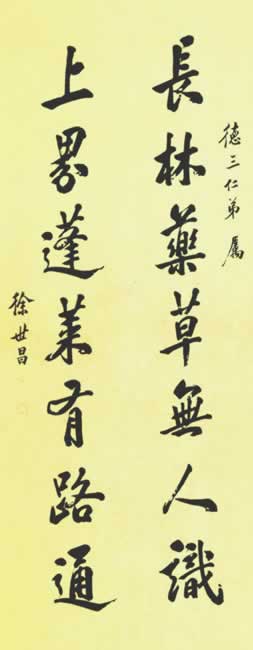 德三仁弟屬
長林藥草無人識
上界蓬萊有路通
徐世昌